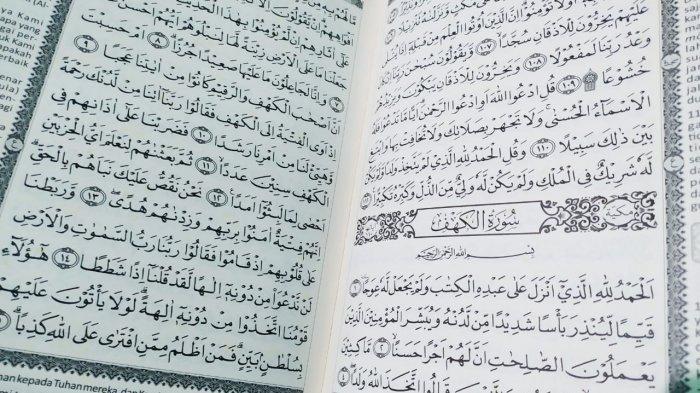 اُوْتُوا الْعِلْمَ مِنْ قَبْلِهٖٓ
عَلَيْهِمْ يَخِرُّوْنَ لِلْاَذْقَانِ سُجَّدًا ۙ ١٠٧ وَّيَقُوْلُوْنَ
وَعْدُ رَبِّنَا لَمَفْعُوْلًا ١٠٨ وَيَخِرُّوْنَ لِلْاَذْقَانِ يَبْكُوْنَ وَيَزِيْدُهُمْ
خُشُوْعًا ۩ ١٠٩ قُلِ ادْعُوا اللّٰهَ اَوِ ادْعُوا الرَّحْمٰنَ اَيًّا مَّا
الْاَسْمَاۤءُ الْحُسْنٰىۚ وَلَا تَجْهَرْ بِصَلَاتِكَ وَلَا تُخَافِتْ بِهَا وَابْتَغِ
بَيْنَ ذٰلِكَ سَبِيْلًا ١١٠ وَقُلِ الْحَمْدُ لِلّٰهِ الَّذِيْ لَمْ يَتَّخِذْ وَلَدًا
لَّهٗ شَرِيْكٌ فِى الْمُلْكِ وَلَمْ يَكُنْ لَّهٗ وَلِيٌّ مِّنَ الذُّلِّ وَكَبِّرْهُ تَكْبِيْرًا
مكية سُوْرَةُ الْكَهْفِ
بِسْمِ اللّٰهِ الرَّحْمٰنِ الرَّحِيْمِ
اَلْحَمْدُ لِلّٰهِ الَّذِيْٓ اَنْزَلَ عَلٰى عَبْدِهِ الْكِتٰبَ وَلَمْ يَجْعَلْ لَّهٗ عِوَجًا ١
قَيِّمًا لِّيُنْذِرَ بَأْسًا شَدِيْدًا مِّنْ لَّدُنْهُ وَيُبَشِّرَ الْمُؤْمِنِيْنَ الَّذِيْنَ
يَعْمَلُوْنَ الصّٰلِحٰتِ اَنَّ لَهُمْ اَجْرًا حَسَنًا ٢ مَّاكِثِيْنَ
قَالُوا اتَّخَذَ اللّٰهُ وَلَدًا ٤
اَفْوَاهِهِمْۗ اِنْ يَّقُوْلُوْنَ
عَلٰٓى اٰثَارِهِمْ اِنْ لَّمْ يُؤْمِنُوْا بِهٰذَا الْحَدِيْثِ
جَعَلْنَا مَا عَلَى الْاَرْضِ زِيْنَةً لَّهَا لِنَبْلُوَهُمْ اَيُّهُمْ اَحْسَنُ
وَاِنَّا لَجَاعِلُوْنَ مَا عَلَيْهَا صَعِيْدًا جُرُزًا ٨ اَمْ حَسِبْتَ
اَنَّ اَصْحٰبَ الْكَهْفِ وَالرَّقِيْمِ كَانُوْا مِنْ اٰيٰتِنَا عَجَبًا ٩
اِذْ اَوَى الْفِتْيَةُ اِلَى الْكَهْفِ فَقَالُوْا رَبَّنَآ اٰتِنَا مِنْ لَّدُنْكَ رَحْمَةً
وَّهَيِّئْ لَنَا مِنْ اَمْرِنَا رَشَدًا ١٠ فَضَرَبْنَا عَلٰٓى اٰذَانِهِمْ فِى
الْكَهْفِ سِنِيْنَ عَدَدًا ١١ ثُمَّ بَعَثْنٰهُمْ لِنَعْلَمَ اَيُّ الْحِزْبَيْنِ
اَحْصٰى لِمَا لَبِثُوْٓا اَمَدًا ١٢ نَحْنُ نَقُصُّ عَلَيْكَ نَبَاَهُمْ بِالْحَقِّۗ
اِنَّهُمْ فِتْيَةٌ اٰمَنُوْا بِرَبِّهِمْ وَزِدْنٰهُمْ هُدًىۖ ١٣ وَّرَبَطْنَا
عَلٰى قُلُوْبِهِمْ اِذْ قَامُوْا فَقَالُوْا رَبُّنَا رَبُّ السَّمٰوٰتِ وَالْاَرْضِ
لَنْ نَّدْعُوَا۟ مِنْ دُوْنِهٖٓ اِلٰهًا لَّقَدْ قُلْنَآ اِذًا شَطَطًا ١٤ هٰٓؤُلَاۤءِ
قَوْمُنَا اتَّخَذُوْا مِنْ دُوْنِهٖٓ اٰلِهَةًۗ لَوْلَا يَأْتُوْنَ عَلَيْهِمْ
بِسُلْطٰنٍۢ بَيِّنٍۗ فَمَنْ اَظْلَمُ مِمَّنِ افْتَرٰى عَلَى اللّٰهِ كَذِبًاۗ
kepada Tuhan mereka, dan